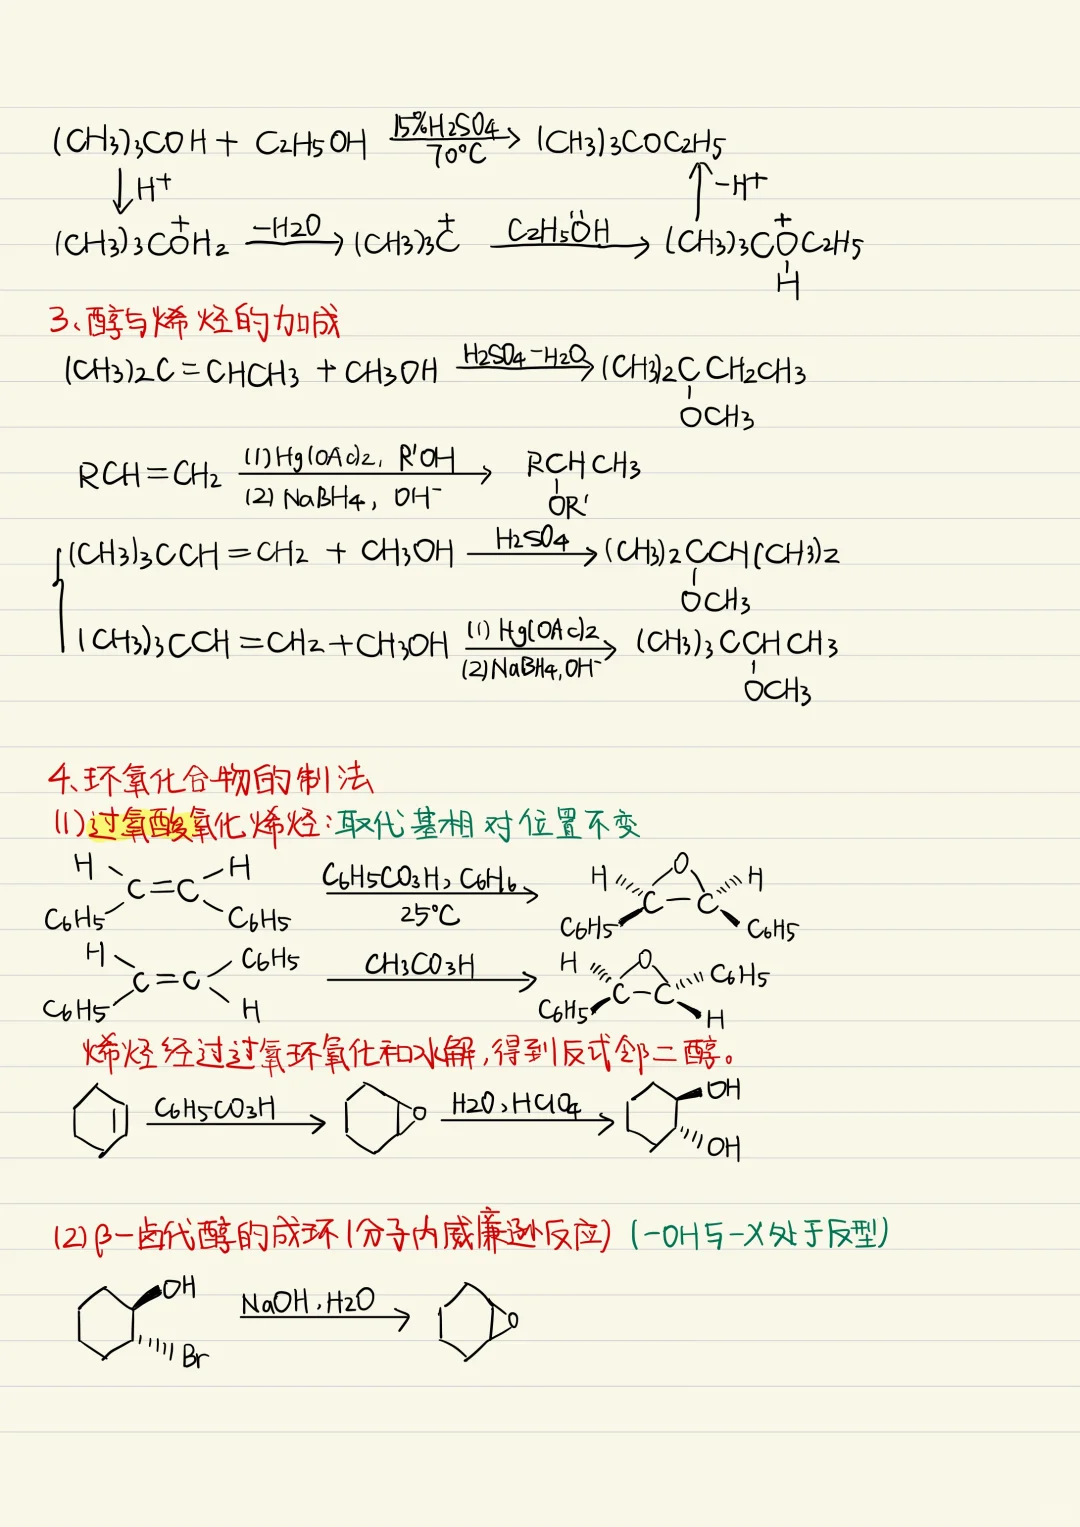 (CH3)3COH + C2H5OH 15%H2SO4 70°C → (CH3)3COC2H5
↓ H+ ↑ -H+
(CH3)3COH2 + -H2O → (CH3)3C + C2H5ÖH → (CH3)3COC2H5 +
H
3、醇与烯烃的加成
(CH3)2C=CHCH3 + CH3OH H2SO4-H2O → (CH3)2CCH2CH3
OCH3
RCH=CH2 (1)Hg(OAc)2, R'OH → RCHCH3
(2)NaBH4, OH- OR'
(CH3)3CCH=CH2 + CH3OH H2SO4 → (CH3)2CCH(CH3)2
OCH3
(CH3)3CCH=CH2+CH3OH (1)Hg(OAc)2 → (CH3)3CCHCH3
(2)NaBH4,OH- OCH3
4、环氧化合物的制法
(1)过氧酸氧化烯烃:取代基相对位置不变
H H C6H5CO3H, C6H6 H O H
C=C 25°C → C-C
C6H5 C6H5 C6H5 C6H5
H C6H5 CH3CO3H H O C6H5
C=C → C-C
C6H5 H C6H5 H
烯烃经过过氧环氧化和水解,得到反式邻二醇。
C6H5CO3H → O H2O,HClO4 → OH
OH
(2)β-卤代醇的成环(分子内威廉逊反应)(-OH与-X处于反型)
OH NaOH,H2O → O
Br